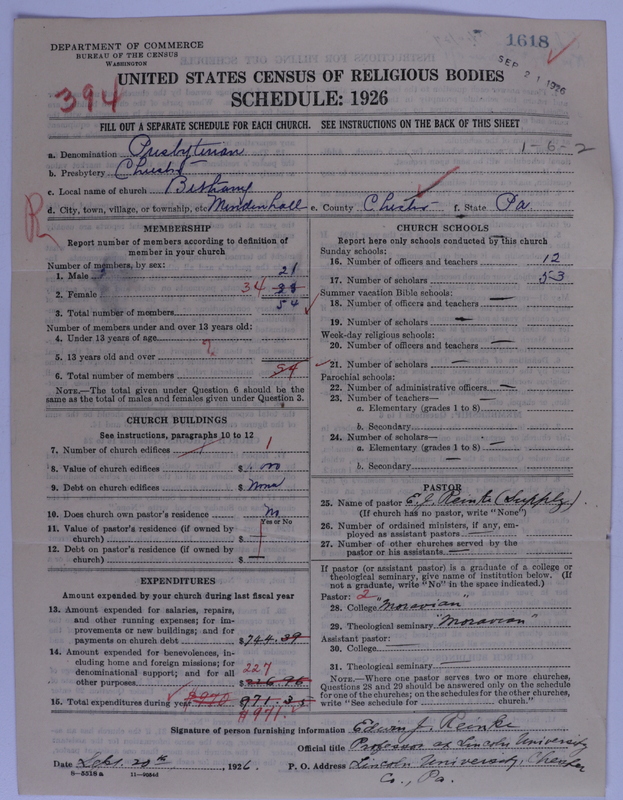 DEPARTMENT OF COMMERCE
BUREAU OF THE CENSUS
WASHINGTON
1618
SEP 21 1926
394
UNITED STATES CENSUS OF RELIGIOUS BODIES
SCHEDULE: 1926
FILL OUT A SEPARATE SCHEDULE FOR EACH CHURCH. SEE INSTRUCTIONS ON THE BACK OF THIS SHEET
1-6-2
a. Denomination Presbyterian
b. Presbytery Chester
c. Local name of church Bethany
d. City, town, village, or township, etc Mendenhall e. County Chester f. State Pa.
R
MEMBERSHIP
Report number of members according to definition of
member in your church
Number of members, by sex:
1. Male 21
2. Female 34 33
3. Total number of members 54
Number of members under and over 13 years old:
4. Under 13 years of age
5. 13 years old and over ?
6. Total number of members 54
NOTE.—The total given under Question 6 should be the
same as the total of males and females given under Question 3.
CHURCH BUILDINGS
See instructions, paragraphs 10 to 12
7. Number of church edifices 1
8. Value of church edifices $ no
9. Debt on church edifices $ None
10. Does church own pastor's residence No
Yes or No
11. Value of pastor's residence (if owned by
church) $
12. Debt on pastor's residence (if owned by
church) $
EXPENDITURES
Amount expended by your church during last fiscal year
13. Amount expended for salaries, repairs,
and other running expenses; for im-
provements or new buildings; and for
payments on church debt $744.39
14. Amount expended for benevolences, in-
cluding home and foreign missions; for
denominational support; and for all 227
other purposes $226.96
15. Total expenditures during year 971.35
$971.
CHURCH SCHOOLS
Report here only schools conducted by this church
Sunday schools:
16. Number of officers and teachers 12
17. Number of scholars 53
Summer vacation Bible schools:
18. Number of officers and teachers —
19. Number of scholars —
Week-day religious schools:
20. Number of officers and teachers —
21. Number of scholars —
Parochial schools:
22. Number of administrative officers —
23. Number of teachers—
a. Elementary (grades 1 to 8) —
b. Secondary —
24. Number of scholars—
a. Elementary (grades 1 to 8) —
b. Secondary —
PASTOR
25. Name of pastor E. J. Reinke (Supply.)
(If church has no pastor, write "None")
26. Number of ordained ministers, if any, em-
ployed as assistant pastors —
27. Number of other churches served by the
pastor or his assistants —
If pastor (or assistant pastor) is a graduate of a college or
theological seminary, give name of institution below. (If
not a graduate, write "No" in the space indicated.)
Pastor: 2
28. College "Moravian"
29. Theological seminary "Moravian"
Assistant pastor:
30. College —
31. Theological seminary —
NOTE.—Where one pastor serves two or more churches,
Questions 28 and 29 should be answered only on the schedule
for one of the churches; on the schedules for the other churches,
write "See schedule for church."
Signature of person furnishing information Edwin J. Reinke
Official title Professor at Lincoln University
Date Sept. 20th, 1926. P. O. Address Lincoln University, Chester
Co., Pa.
8-5518 a 11-9034d